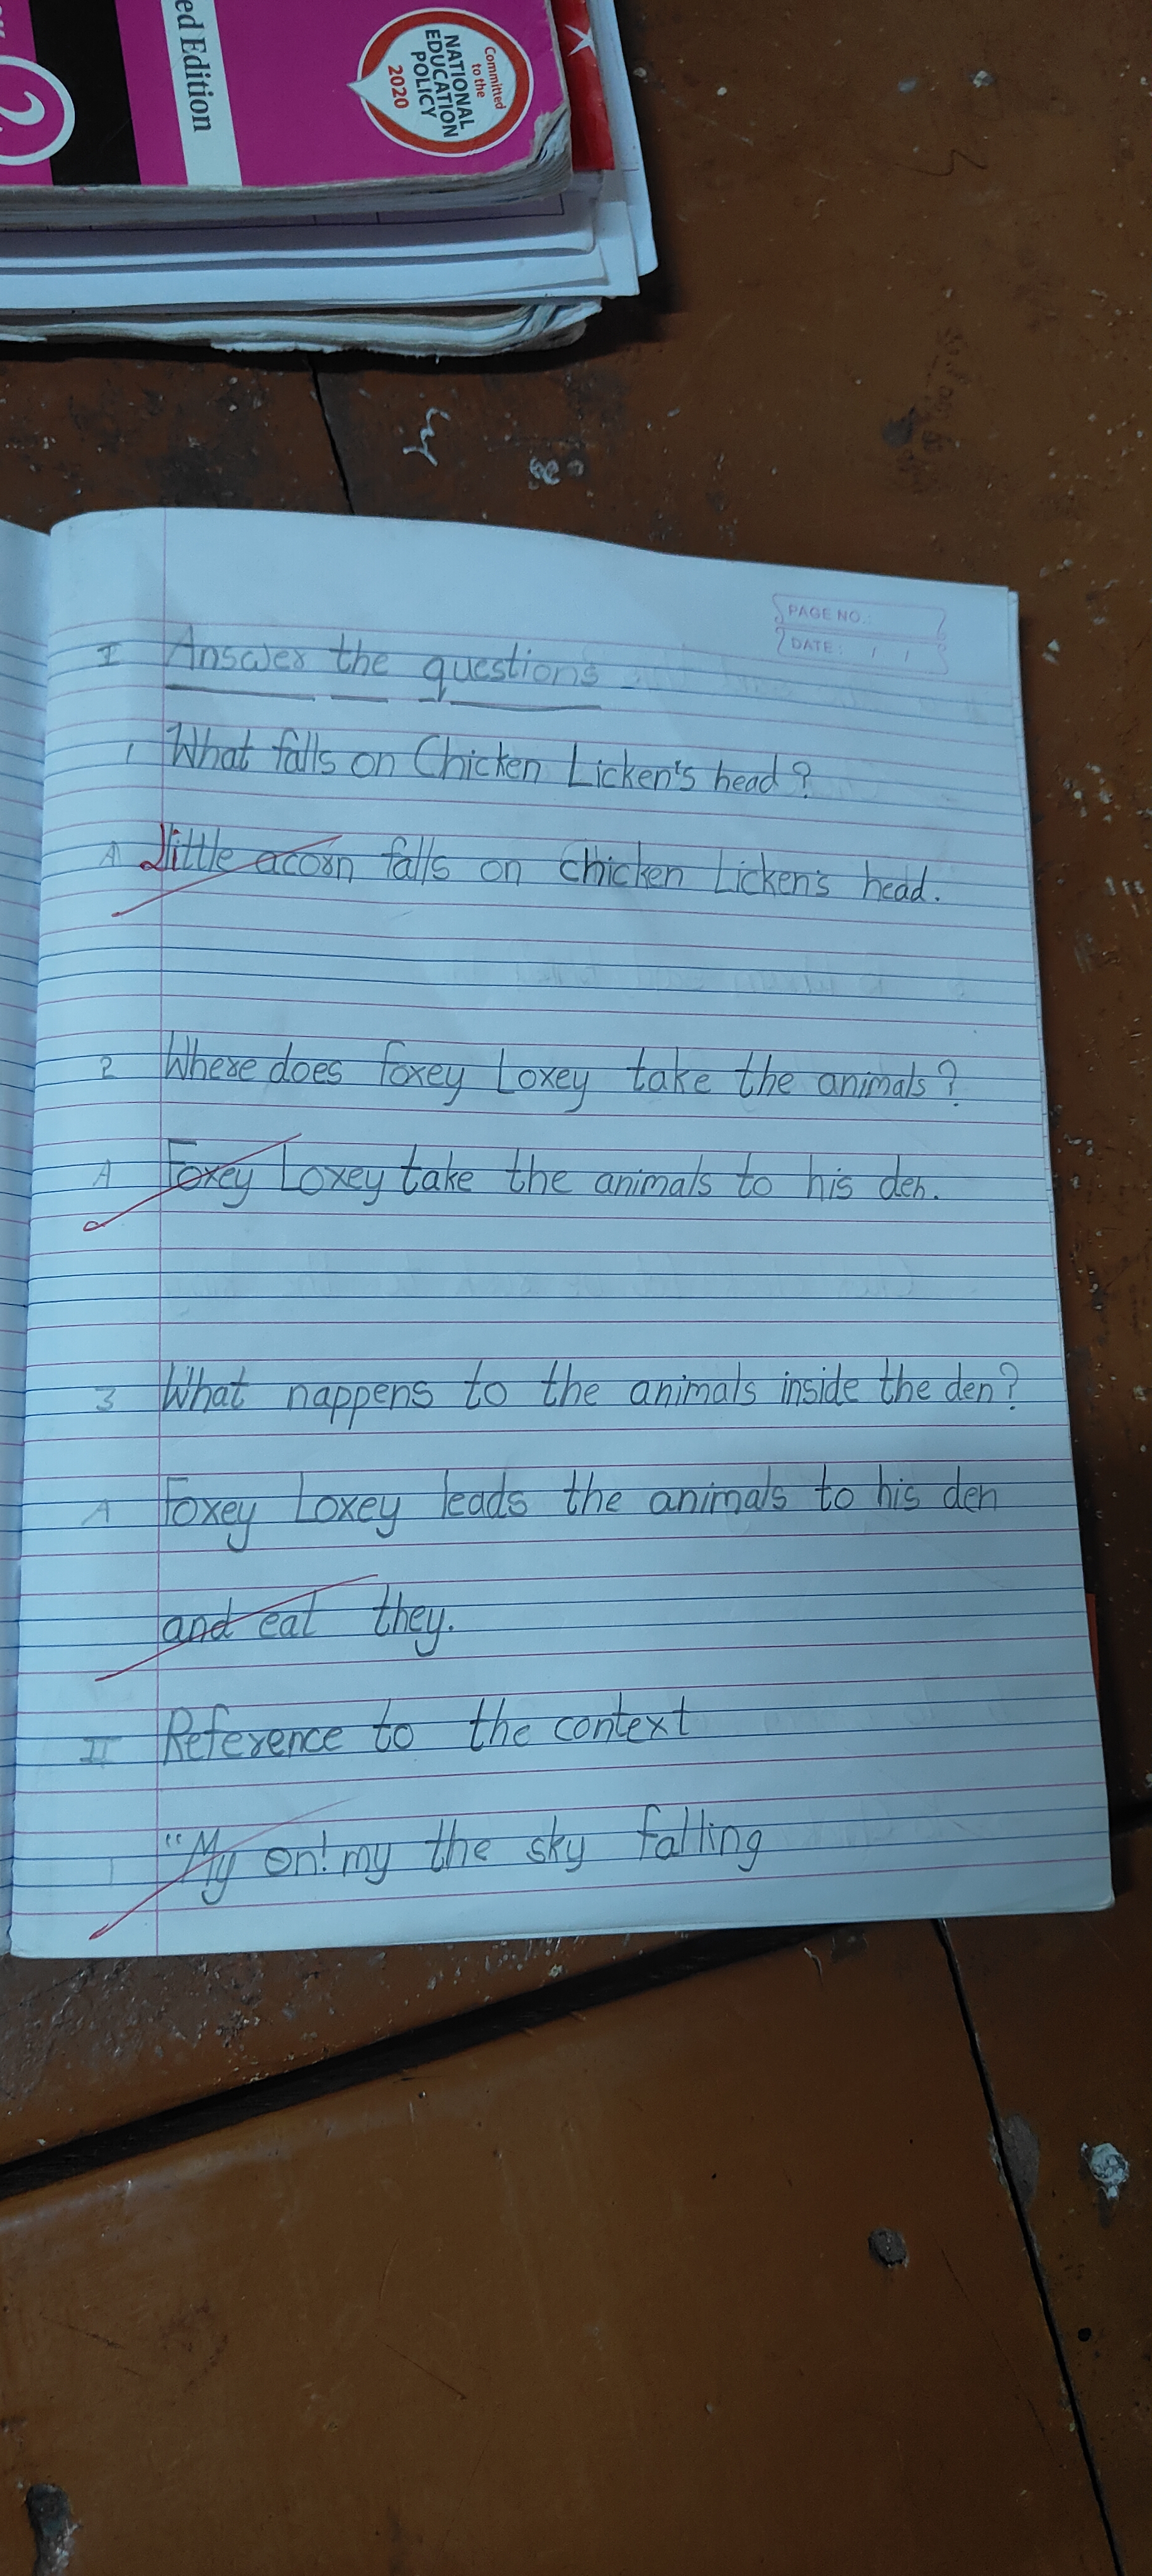 ed Edition
2
Committed
to the
NATIONAL
EDUCATION
POLICY
2020
PAGE NO.:
DATE: / /
I Answer the questions
1 What falls on Chicken Licken's head?
A Little acorn falls on chicken Licken's head.
2 Where does foxey Loxey take the animals?
A Foxey Loxey take the animals to his den.
3 What nappens to the animals inside the den?
A Foxey Loxey leads the animals to his den
and eat they.
II Reference to the context
1 "My on! my the sky falling